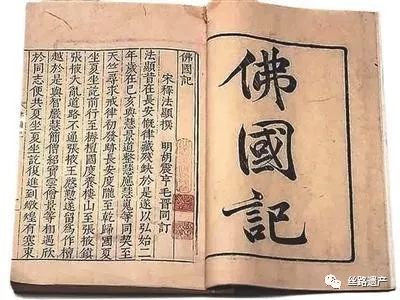 佛國記
佛國記
宋釋法顯撰
明胡震亨毛晉同訂
法顯昔在長安慨律藏殘缺於是遂以弘始二
年歲在己亥與慧景道整慧應慧嵬等同契至
天竺尋求戒律初發跡長安度隴至乾歸國夏
坐夏坐訖前行至耨檀國度養樓山至張掖鎮
張掖大亂道路不通張掖王慇懃遂留為作檀
越於是與智嚴慧簡僧紹寶雲僧景等相遇欣
於同志便共夏坐夏坐訖復進到燉煌有塞東
丝路遗产